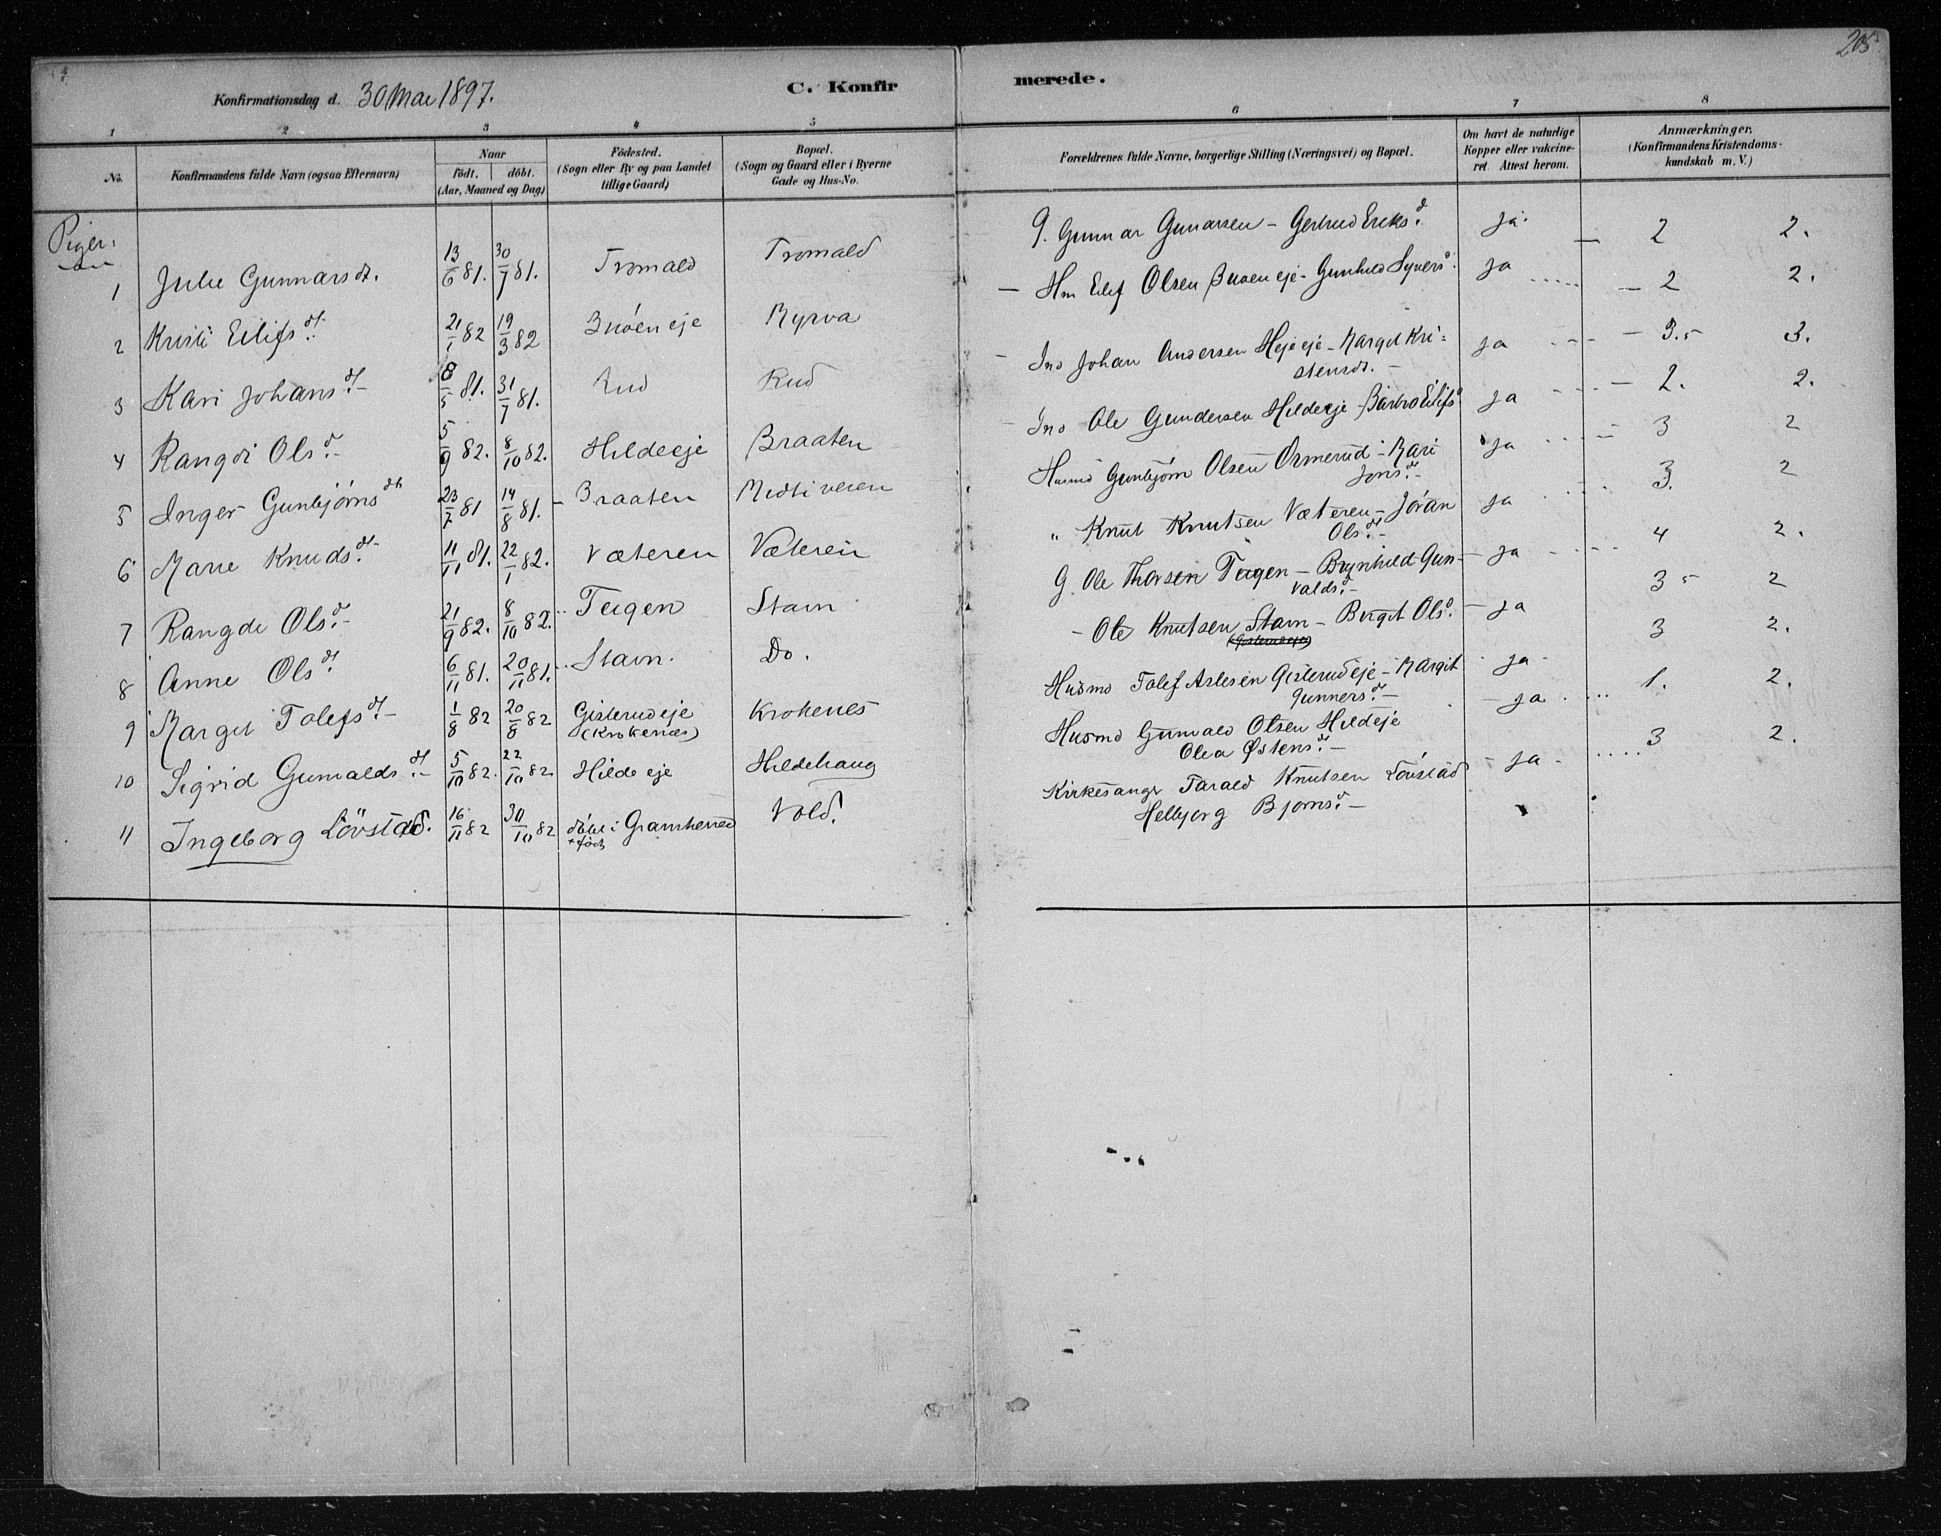 205
Konfirmationsdag d. 30 Mai 1897. C. Konfirmerede.
1 2 3 4 5 6 7 8
No. Konfirmandens fulde Navn (ogsaa Efternavn) Naar født. døbt. (Aar, Maaned og Dag) Fødested. (Sogn eller By og paa Landet tillige Gaard) Bopæl. (Sogn og Gaard eller i Byerne Gade og Hus-No. Forældrenes fulde Navne, borgerlige Stilling (Næringsvei) og Bopæl. Om havt de naturlige Kopper eller vakcineret. Attest herom. Anmærkninger. (Konfirmandens Kristendomskundskab m. V.)
Piger:
1 Julie Gunnarsdt. 13/6 81. 30/7 81. Tromald Tromald G. Gunnar Gunarsen - Gertrud Ereksd. ja. 2 2.
2 Kristi Eilifsdt. 21/1 82 19/3 82 Buøen eje Ryrva Hm Eilef Olsen Buøen eje - Gunhild Syversd. ja - 2 2.
3 Kari Johansdt. 8/5 81. 31/7 81. Rud Rud Ind Johan Andersen Hejeeje - Margit Kristensdt. - ja - 3. 3.
4 Rangdi Olsd. 5/9 82. 8/10 82. Hildeeje Braaten Ind Ole Gundersen Hildeeje - Barbro Eilifsd ja - 2. 2.
5 Inger Gunbjørnsdt 23/7 81 14/8 81. - Braaten Midtiveien Husmd Gunbjørn Olsen Ormerud - Kari Jonsd. - ja 3 2
6 Marie Knudsdt. 11/11 81. 22/1 82. Væteren Væteren " Knut Knutsen Væteren - Jøran Olsdt. - ja 3. 2
7 Rangdi Olsd. - 21/9 82. 8/10 82. Teigen Stavn G. Ole Thorsen Teigen - Brynhild Gunvaldsd. - ja 4 2.
8 Anne Olsdt. 6/11 81. 20/11 81. Stavn. Do. - Ole Knutsen Stavn - Birgit Olsd. - ja 3 2
9 Margit Tolefsdt. - 1/8 82 20/8 82 Gisterudeje (Krokenæs) Krokenes Husmd Tolef Aslesen Gisterudeje - Margit Gunnersd. - ja - 3 2.
10 Sigrid Gunvaldsdt. - 5/10 82. 22/10 82 Hildeeje Hildehaug Husmd Gunvald Olsen Hildeje Olea Østensd. - - ja 1. 2.
11 Ingeborg Lövstad. 16/11 82 30/10 82 døbt i Gransherred + født Vold. Kirkesanger Tarald Knutsen Lövstad Helbjorg Bjornsd. - - ja - 3 2.